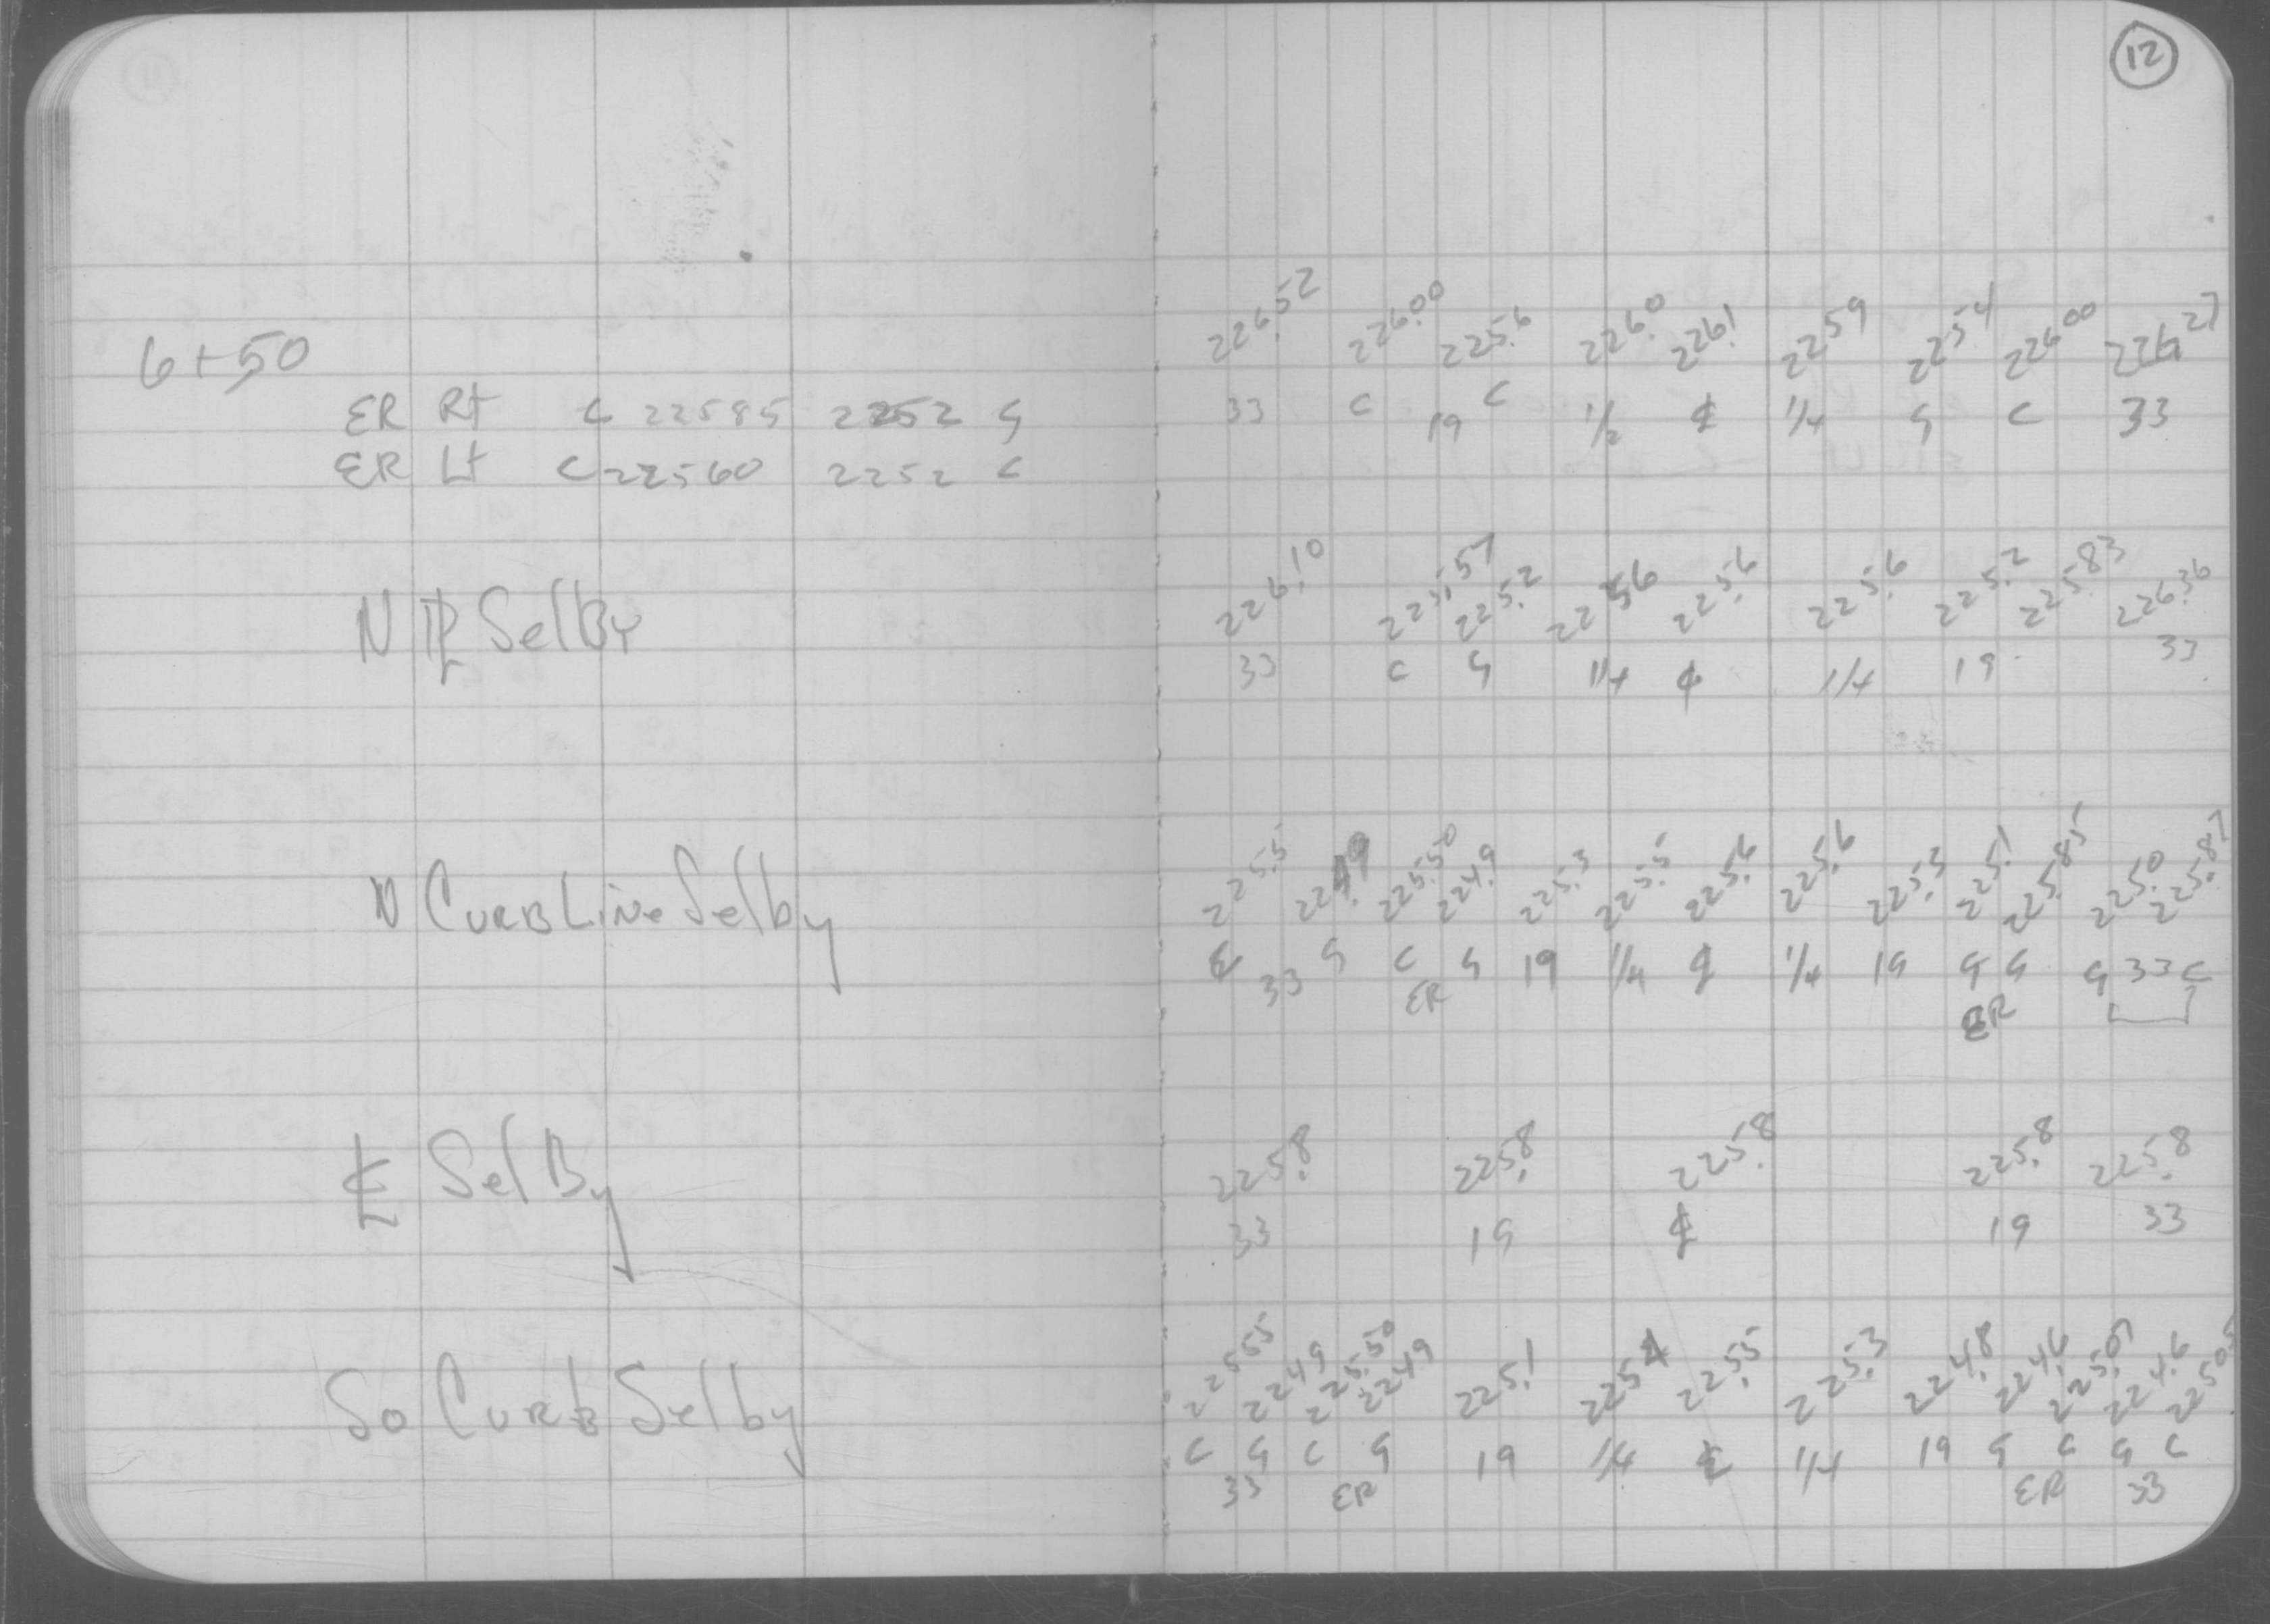 12
226.52 226.00 225.6 226.0 226.1 2259 225.4 22600 226 27
6+50
33 C 19 C 1/2 ℄ 1/4 G C 33
ER Rt C 22585 2252 G
ER Lt C 22560 2252 C
226.10 225.57 225.2 2256 225.6 225.6 225.2 225.83 226.36
N ⅊ SelBy
33 C G 1/4 ℄ 1/4 19 33
225.5 224.9 225.50 224.9 225.3 225.5 225.6 225.6 225.3 225.1 225.85 225.0 225.87
N CurB Line Selby
C 33 G C G 19 1/4 ℄ 1/4 19 G G G 33 C
ER ER
225.8 225.8 225.8 225.8 225.8
℄ SelBy
33 19 ℄ 19 33
22555 2249 225.50 2249 225.1 2254 225.5 225.3 224.8 224.6 225.07 224.6
So Curb Selby
C G C G 19 1/4 ℄ 1/4 19 G C G C
33 ER ER 33